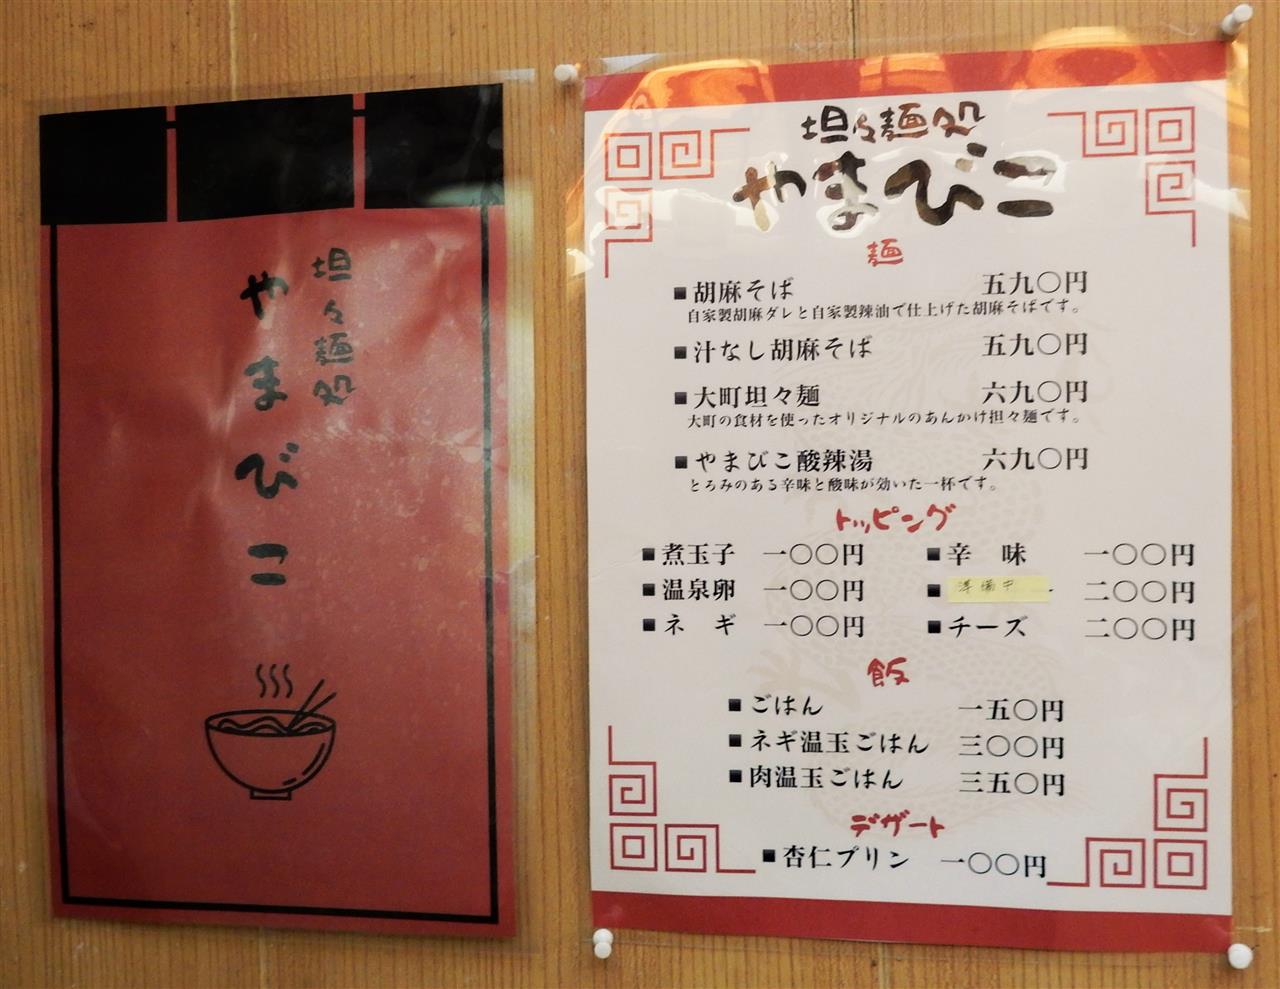 坦々麺処
やまびこ
坦々麺処
やまびこ
麺
■胡麻そば 五九〇円
自家製胡麻ダレと自家製辣油で仕上げた胡麻そばです。
■汁なし胡麻そば 五九〇円
■大町坦々麺 六九〇円
大町の食材を使ったオリジナルのあんかけ担々麺です。
■やまびこ酸辣湯 六九〇円
とろみのある辛味と酸味が効いた一杯です。
トッピング
■煮玉子 一〇〇円 ■辛 味 一〇〇円
■温泉卵 一〇〇円 ■準備中 二〇〇円
■ネ ギ 一〇〇円 ■チーズ 二〇〇円
飯
■ごはん 一五〇円
■ネギ温玉ごはん 三〇〇円
■肉温玉ごはん 三五〇円
デザート
■杏仁プリン 一〇〇円